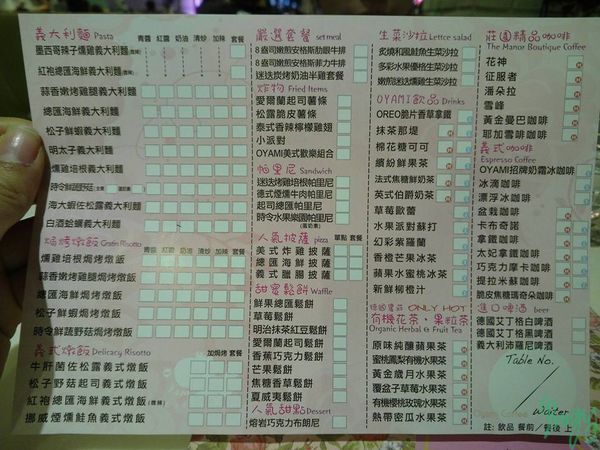 義大利麵 Pasta 青醬 紅醬 奶油 清炒 加辣 套餐
墨西哥辣子燻雞義大利麵
紅袍總匯海鮮義大利麵
蒜香嫩烤雞腿義大利麵
總匯海鮮義大利麵
松子鮮蝦義大利麵
明太子義大利麵
燻雞培根義大利麵
時令鮮蔬野菇
海大蝦仁茄汁義大利麵
白酒蛤蠣義大利麵
焗烤燉飯 Gratin Risotto 青醬 紅醬 奶油 清炒 加辣 套餐
燻雞培根焗烤燉飯
蒜香嫩烤雞腿焗烤燉飯
總匯海鮮焗烤燉飯
松子鮮蝦焗烤燉飯
時令鮮蔬野菇焗烤燉飯
義式燉飯 Delicacy Risotto 加焗烤 套餐
牛肝菌佐松露義式燉飯
松子野菇起司義式燉飯
紅袍總匯海鮮義式燉飯
挪威煙燻鮭魚義式燉飯
嚴選套餐 set meal
8盎司嫩煎安格斯肋眼牛排
8盎司嫩煎安格斯菲力牛排
迷迭炭烤奶油半雞套餐
炸物 Fried Items
愛爾蘭起司薯條
松露脆皮薯條
泰式香辣檸檬雞翅
小派對
OYAMI美式歡樂組合
帕里尼 Sandwich
迷迭烤雞培根帕里尼
德式煙燻牛肉帕里尼
起司總匯帕里尼
時令水果樂園帕里尼
人氣披薩 pizza 單點 套餐
美式炸雞披薩
總匯海鮮披薩
義式臘腸披薩
甜蜜鬆餅 Waffle
鮮果總匯鬆餅
草莓鬆餅
明治抹茶紅豆鬆餅
愛爾蘭起司鬆餅
香蕉巧克力鬆餅
芒果鬆餅
焦糖香草鬆餅
夏威夷鬆餅
人氣甜點 Dessert
熔岩巧克力布朗尼
生菜沙拉 Lettce salad
炙燒和風鮭魚生菜沙拉
多彩水果優格生菜沙拉
嫩煎迷迭燻雞生菜沙拉
OYAMI飲品 Drinks
OREO脆片香草拿鐵
抹茶那堤
棉花糖可可
繽紛鮮果茶
法式焦糖鮮奶茶
英式伯爵奶茶
草莓歐蕾
水果派對蘇打
幻彩紫羅蘭
香橙芒果冰茶
蘋果水蜜桃冰茶
新鮮柳橙汁
ONLY HOT
有機花茶、果粒茶
Organic Herbal & Fruit Tea
原味純釀蘋果茶
蜜桃鳳梨有機水果茶
黃金歲月水果茶
覆盆子草莓水果茶
有機櫻桃玫瑰水果茶
熱帶密瓜水果茶
莊園精品咖啡
The Manor Boutique Coffee
花神
征服者
潘朵拉
雪峰
黃金曼巴咖啡
耶加雪啡咖啡
義式咖啡
Espresso Coffee
OYAMI招牌奶霜冰咖啡
冰滴咖啡
漂浮冰咖啡
盆栽咖啡
卡布奇諾
拿鐵咖啡
太妃拿鐵咖啡
巧克力摩卡咖啡
提拉米蘇咖啡
脆皮焦糖瑪奇朵咖啡
進口啤酒 beer
德國艾丁格白啤酒
德國艾丁格黑啤酒
義大利沛羅尼啤酒
Table No.
Waiter
註: 飲品 餐前 / 餐後 上